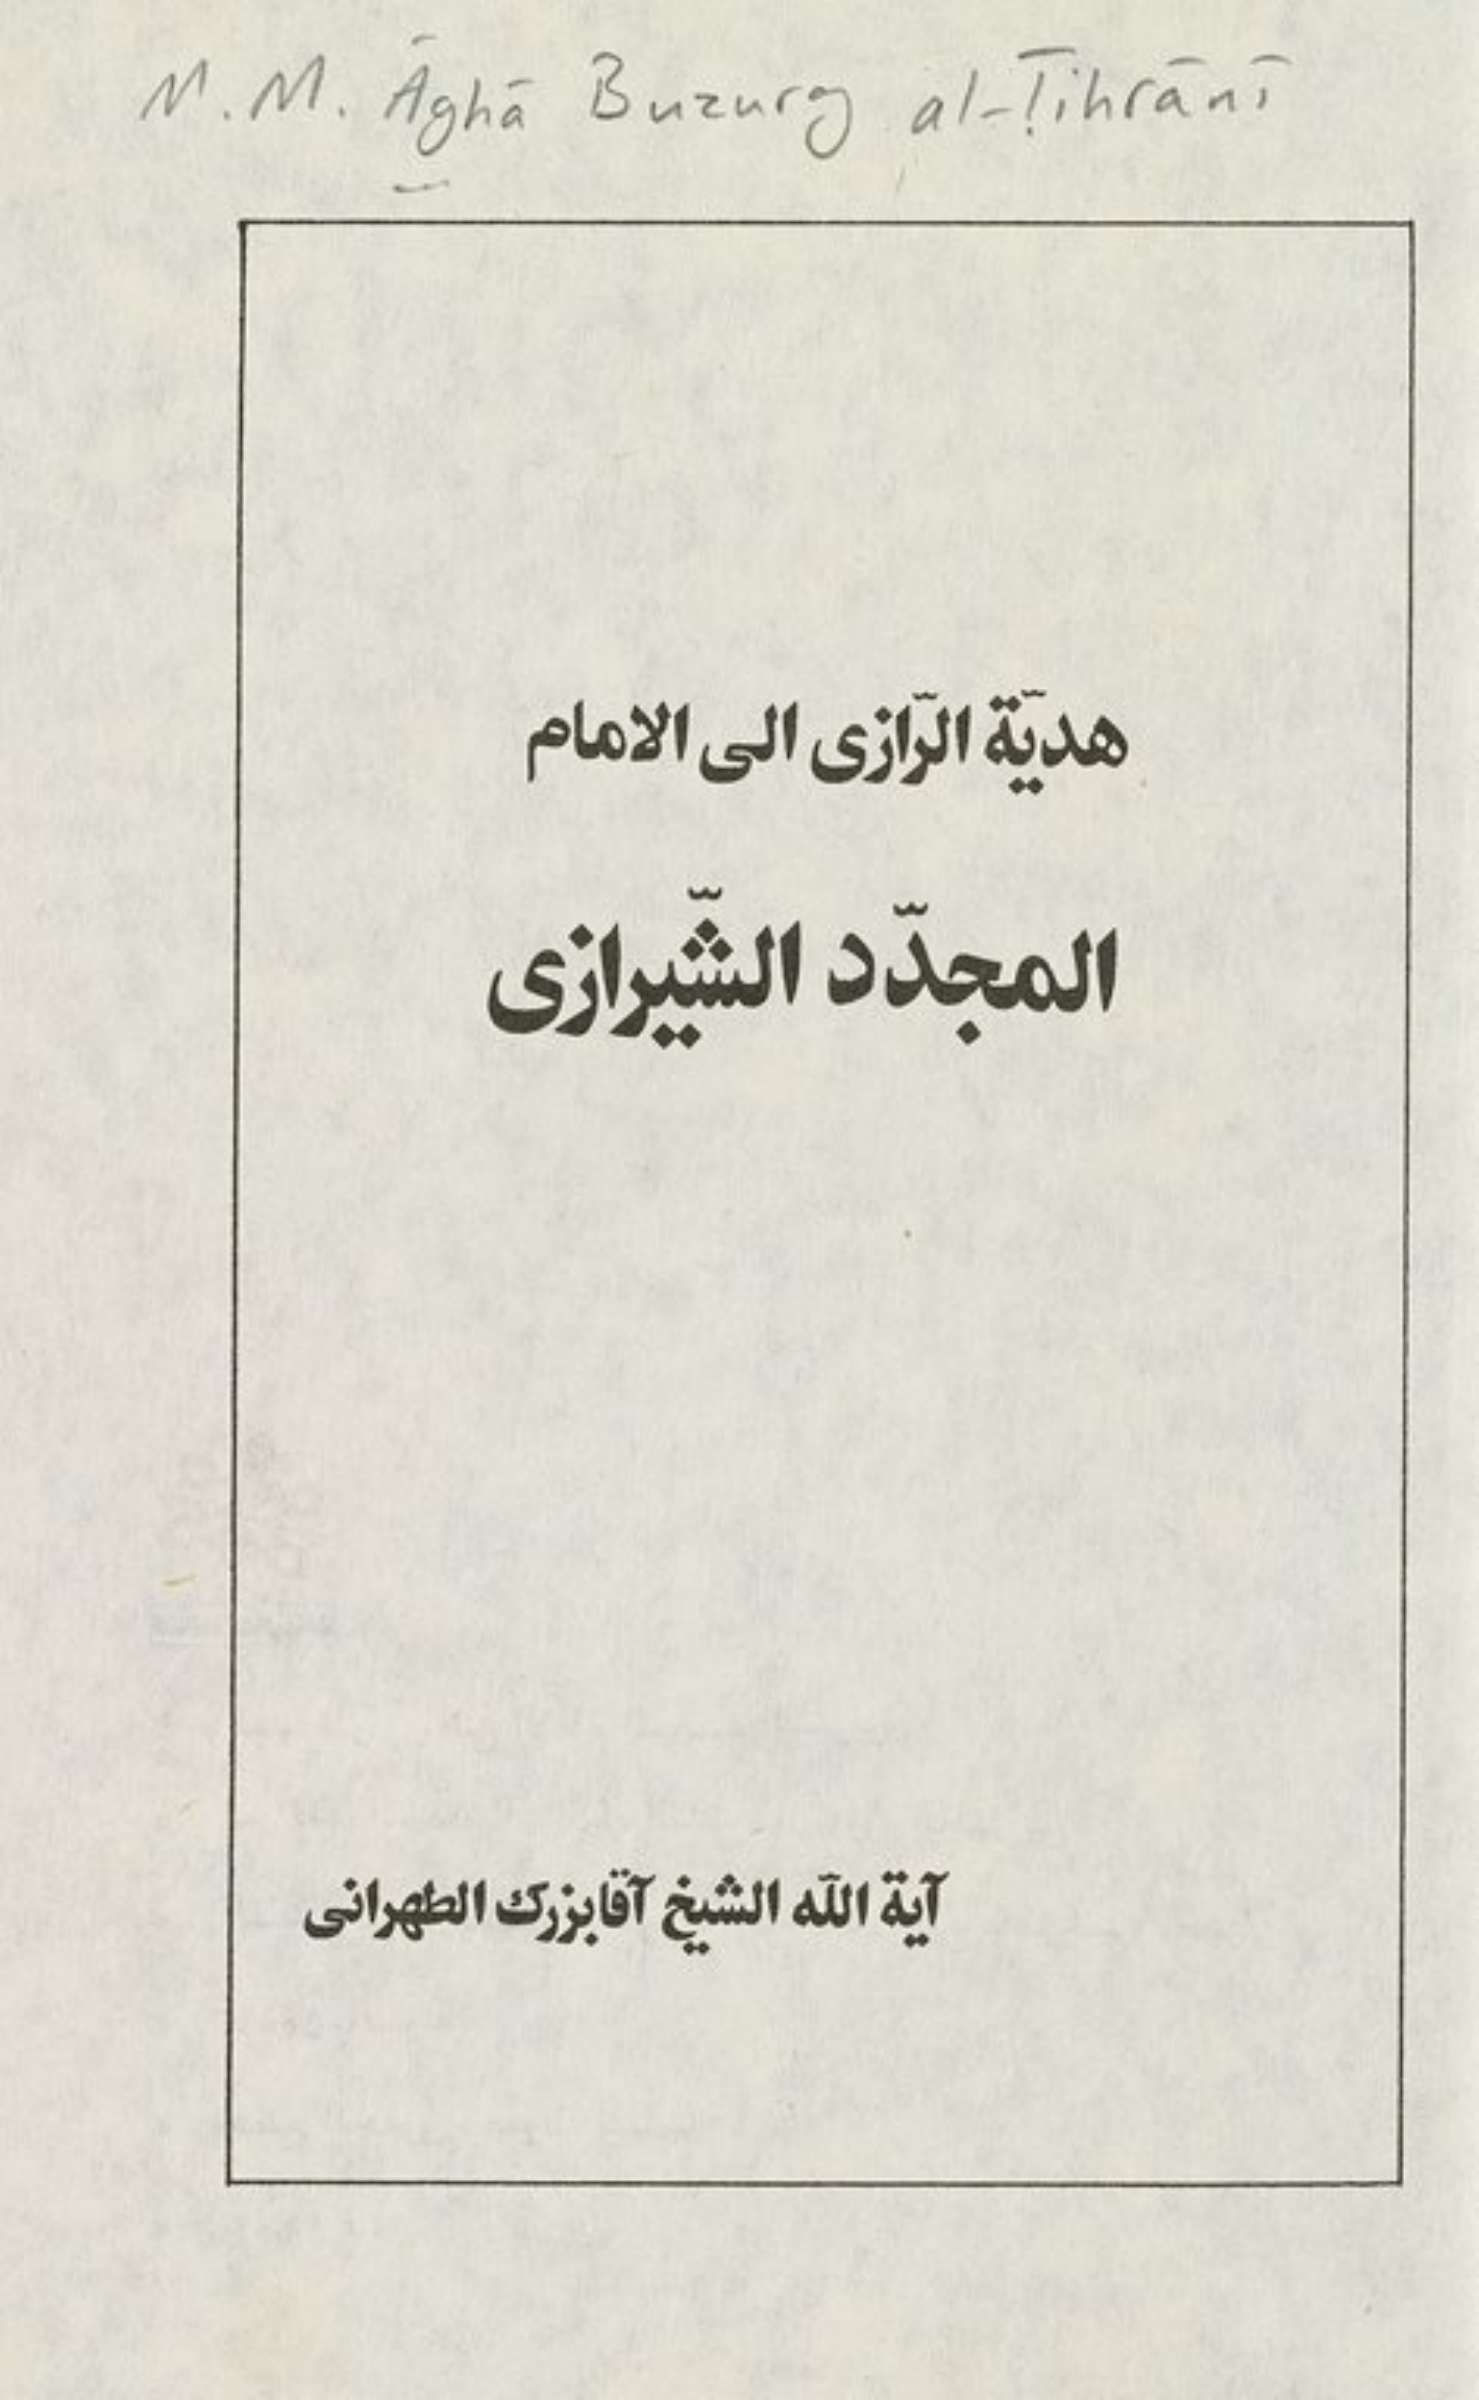 M. M. Āghā Buzurg al-Ṭihrānī
هديّة الرّازى الى الامام
المجدّد الشّيرازى
آية اللّه الشيخ آقابزرك الطهرانى